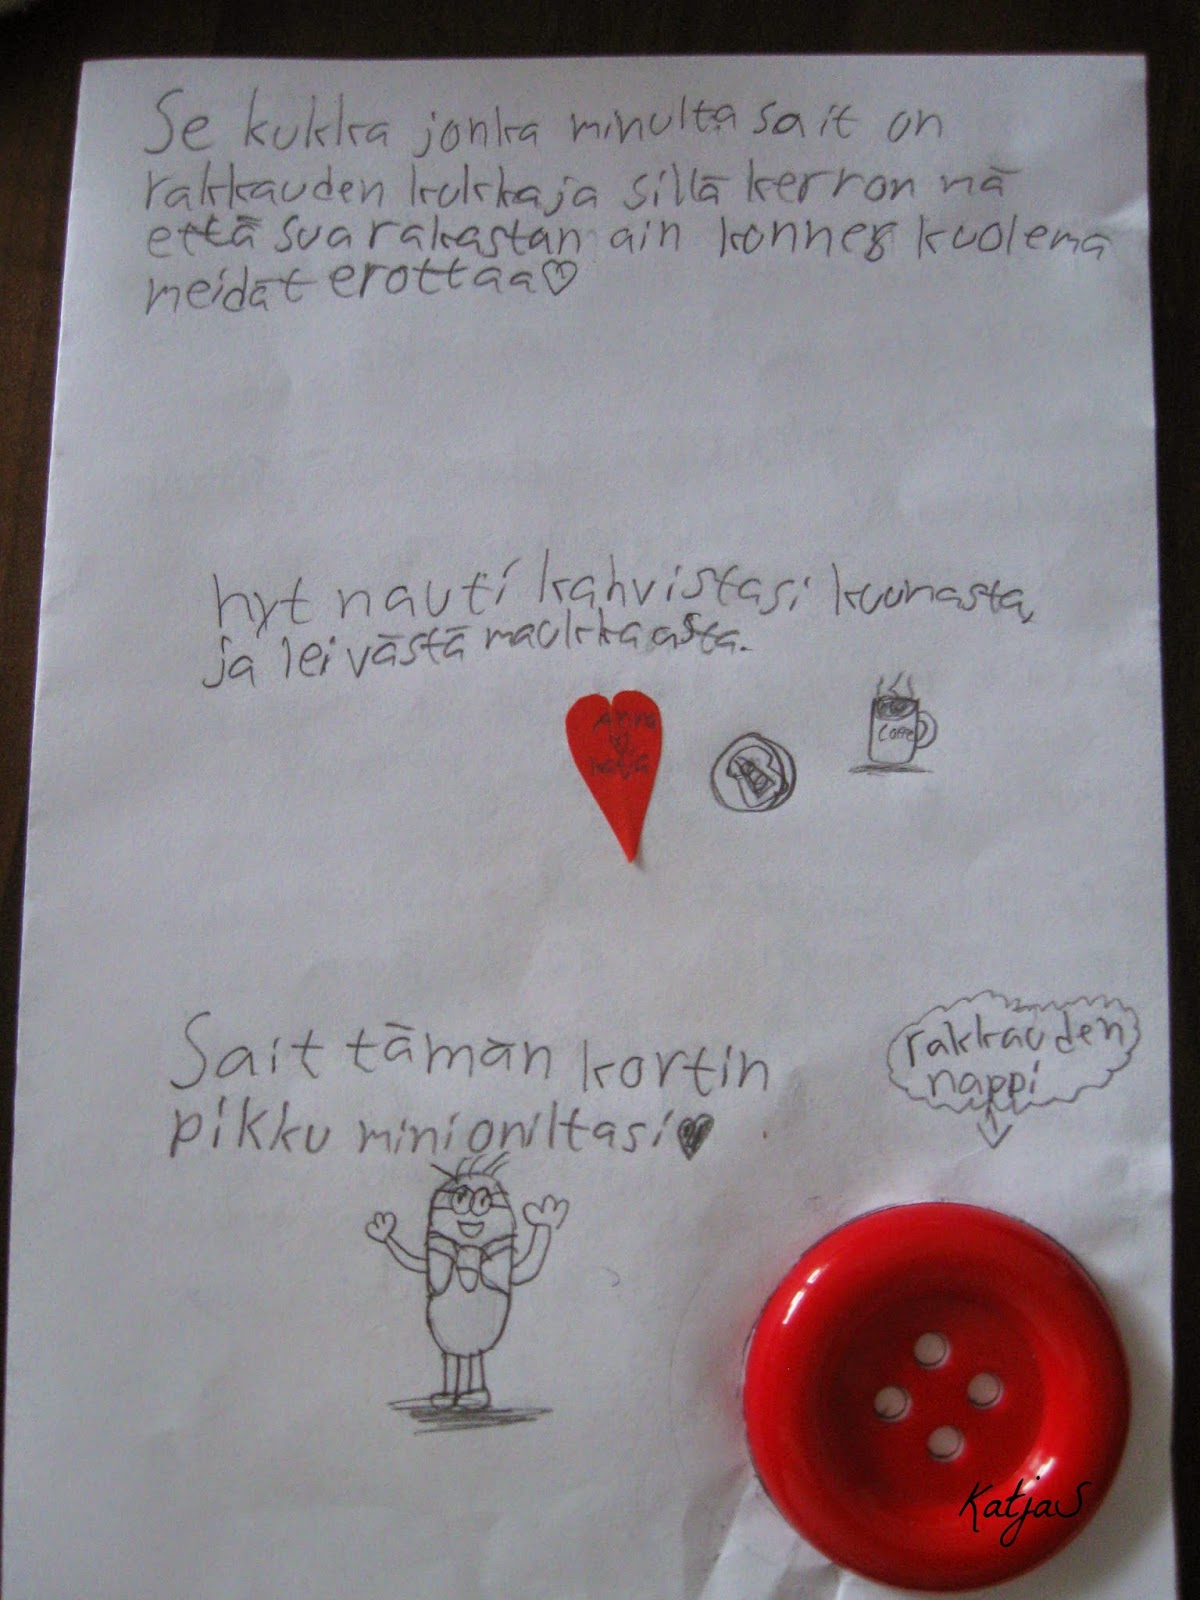 Se kukka jonka minulta sait on
rakkauden kukka ja sillä kerron nä
että sua rakastan ain konnes kuolema
meidät erottaa♡
nyt nauti kahvistasi kuumasta,
ja leivästä maukkaasta.
Coffe
Sait tämän kortin
pikku minioniltasi♥
rakkauden
nappi
KatjaS